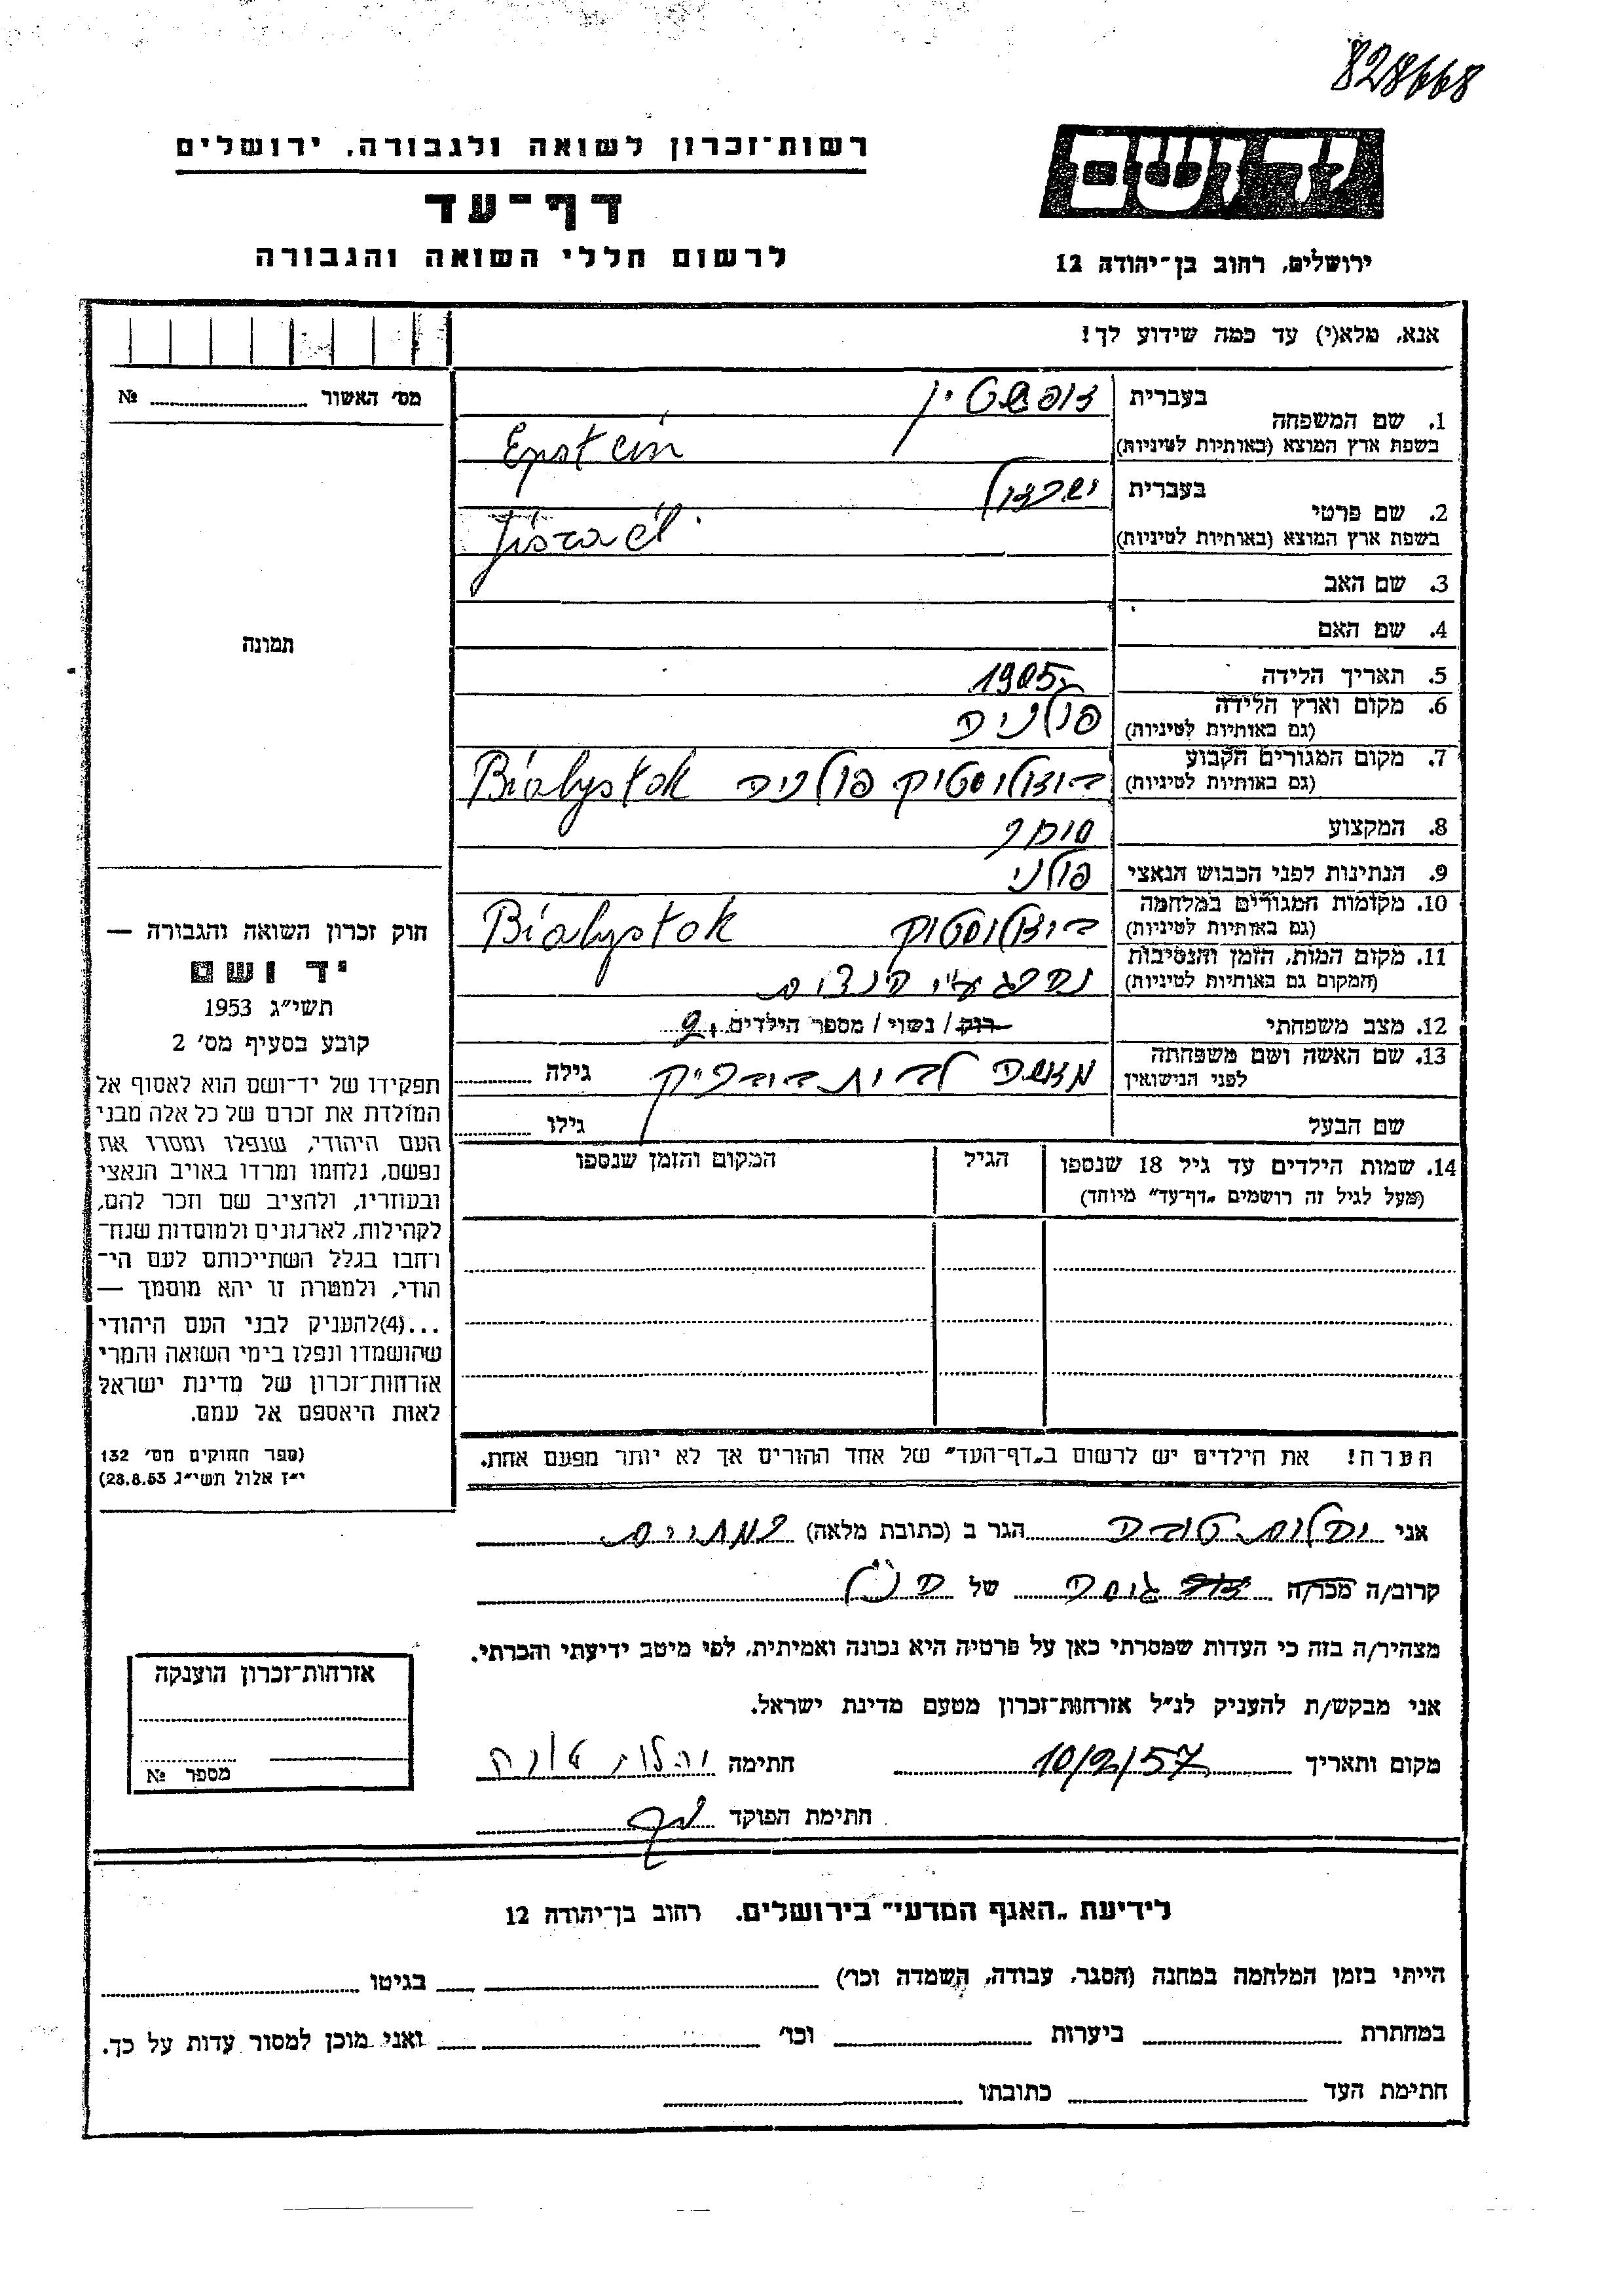 828668
רשות־זכרון לשואה ולגבורה, ירושלים
דף־עד
לרשום חללי השואה והגבורה
יד ושם
ירושלים, רחוב בן־יהודה 12
אנא, מלא(י) עד כמה שידוע לך!
מס' האשור № 
1. שם המשפחה בעברית אפשטיין
בשפת ארץ המוצא (באותיות לטיניות) Epstein
2. שם פרטי בעברית ישראל
בשפת ארץ המוצא (באותיות לטיניות) Jisrael
3. שם האב
4. שם האם
תמונה
5. תאריך הלידה 1905
6. מקום וארץ הלידה (גם באותיות לטיניות) פולניה
7. מקום המגורים הקבוע (גם באותיות לטיניות) ביאליסטוק פולניה Bialystok
8. המקצוע סוחר
9. הנתינות לפני הכבוש הנאצי פולני
10. מקומות המגורים במלחמה (גם באותיות לטיניות) ביאליסטוק Bialystok
11. מקום המות, הזמן והנסיבות (המקום גם באותיות לטיניות) נהרג ע"י הנאצים
12. מצב משפחתי רוק / נשוי / מספר הילדים 2
13. שם האשה ושם משפחתה לפני הנישואין מאשה לבית גילה
שם הבעל גילו
14. שמות הילדים עד גיל 18 שנספו הגיל המקום והזמן שנספו
(מעל לגיל זה רושמים „דף־עד" מיוחד)
חוק זכרון השואה והגבורה —
יד ושם
תשי"ג 1953
קובע בסעיף מס' 2
תפקידו של יד־ושם הוא לאסוף אל
המולדת את זכרם של כל אלה מבני
העם היהודי, שנפלו ומסרו את
נפשם, נלחמו ומרדו באויב הנאצי
ובעוזריו, ולהציב שם וזכר להם,
לקהילות, לארגונים ולמוסדות שנח־
רחבו בגלל השתייכותם לעם הי־
הודי, ולמטרה זו יהא מוסמך —
...(4)להעניק לבני העם היהודי
שהושמדו ונפלו בימי השואה והמרי
אזרחות־זכרון של מדינת ישראל
לאות היאספם אל עמם.
(ספר החוקים מס' 132
י"ז אלול תשי"ג 28.8.53)
הערה! את הילדים יש לרשום ב„דף־העד" של אחד ההורים אך לא יותר מפעם אחת.
אני טובה הגר ב (כתובת מלאה)
קרוב/ה מכר/ה גיסה של הנ"ל
מצהיר/ה בזה כי העדות שמסרתי כאן על פרטיה היא נכונה ואמיתית, לפי מיטב ידיעתי והכרתי.
אני מבקש/ת להעניק לנ"ל אזרחות־זכרון מטעם מדינת ישראל.
מקום ותאריך 10/2/57 חתימה טובה
חתימת הפוקד
אזרחות־זכרון הוענקה
מספר №
לידיעת „האגף המדעי" בירושלים, רחוב בן־יהודה 12
הייתי בזמן המלחמה במחנה (הסגר, עבודה, השמדה וכו') בגיטו
במחתרת ביערות וכו' ואני מוכן למסור עדות על כך.
חתימת העד כתובתו